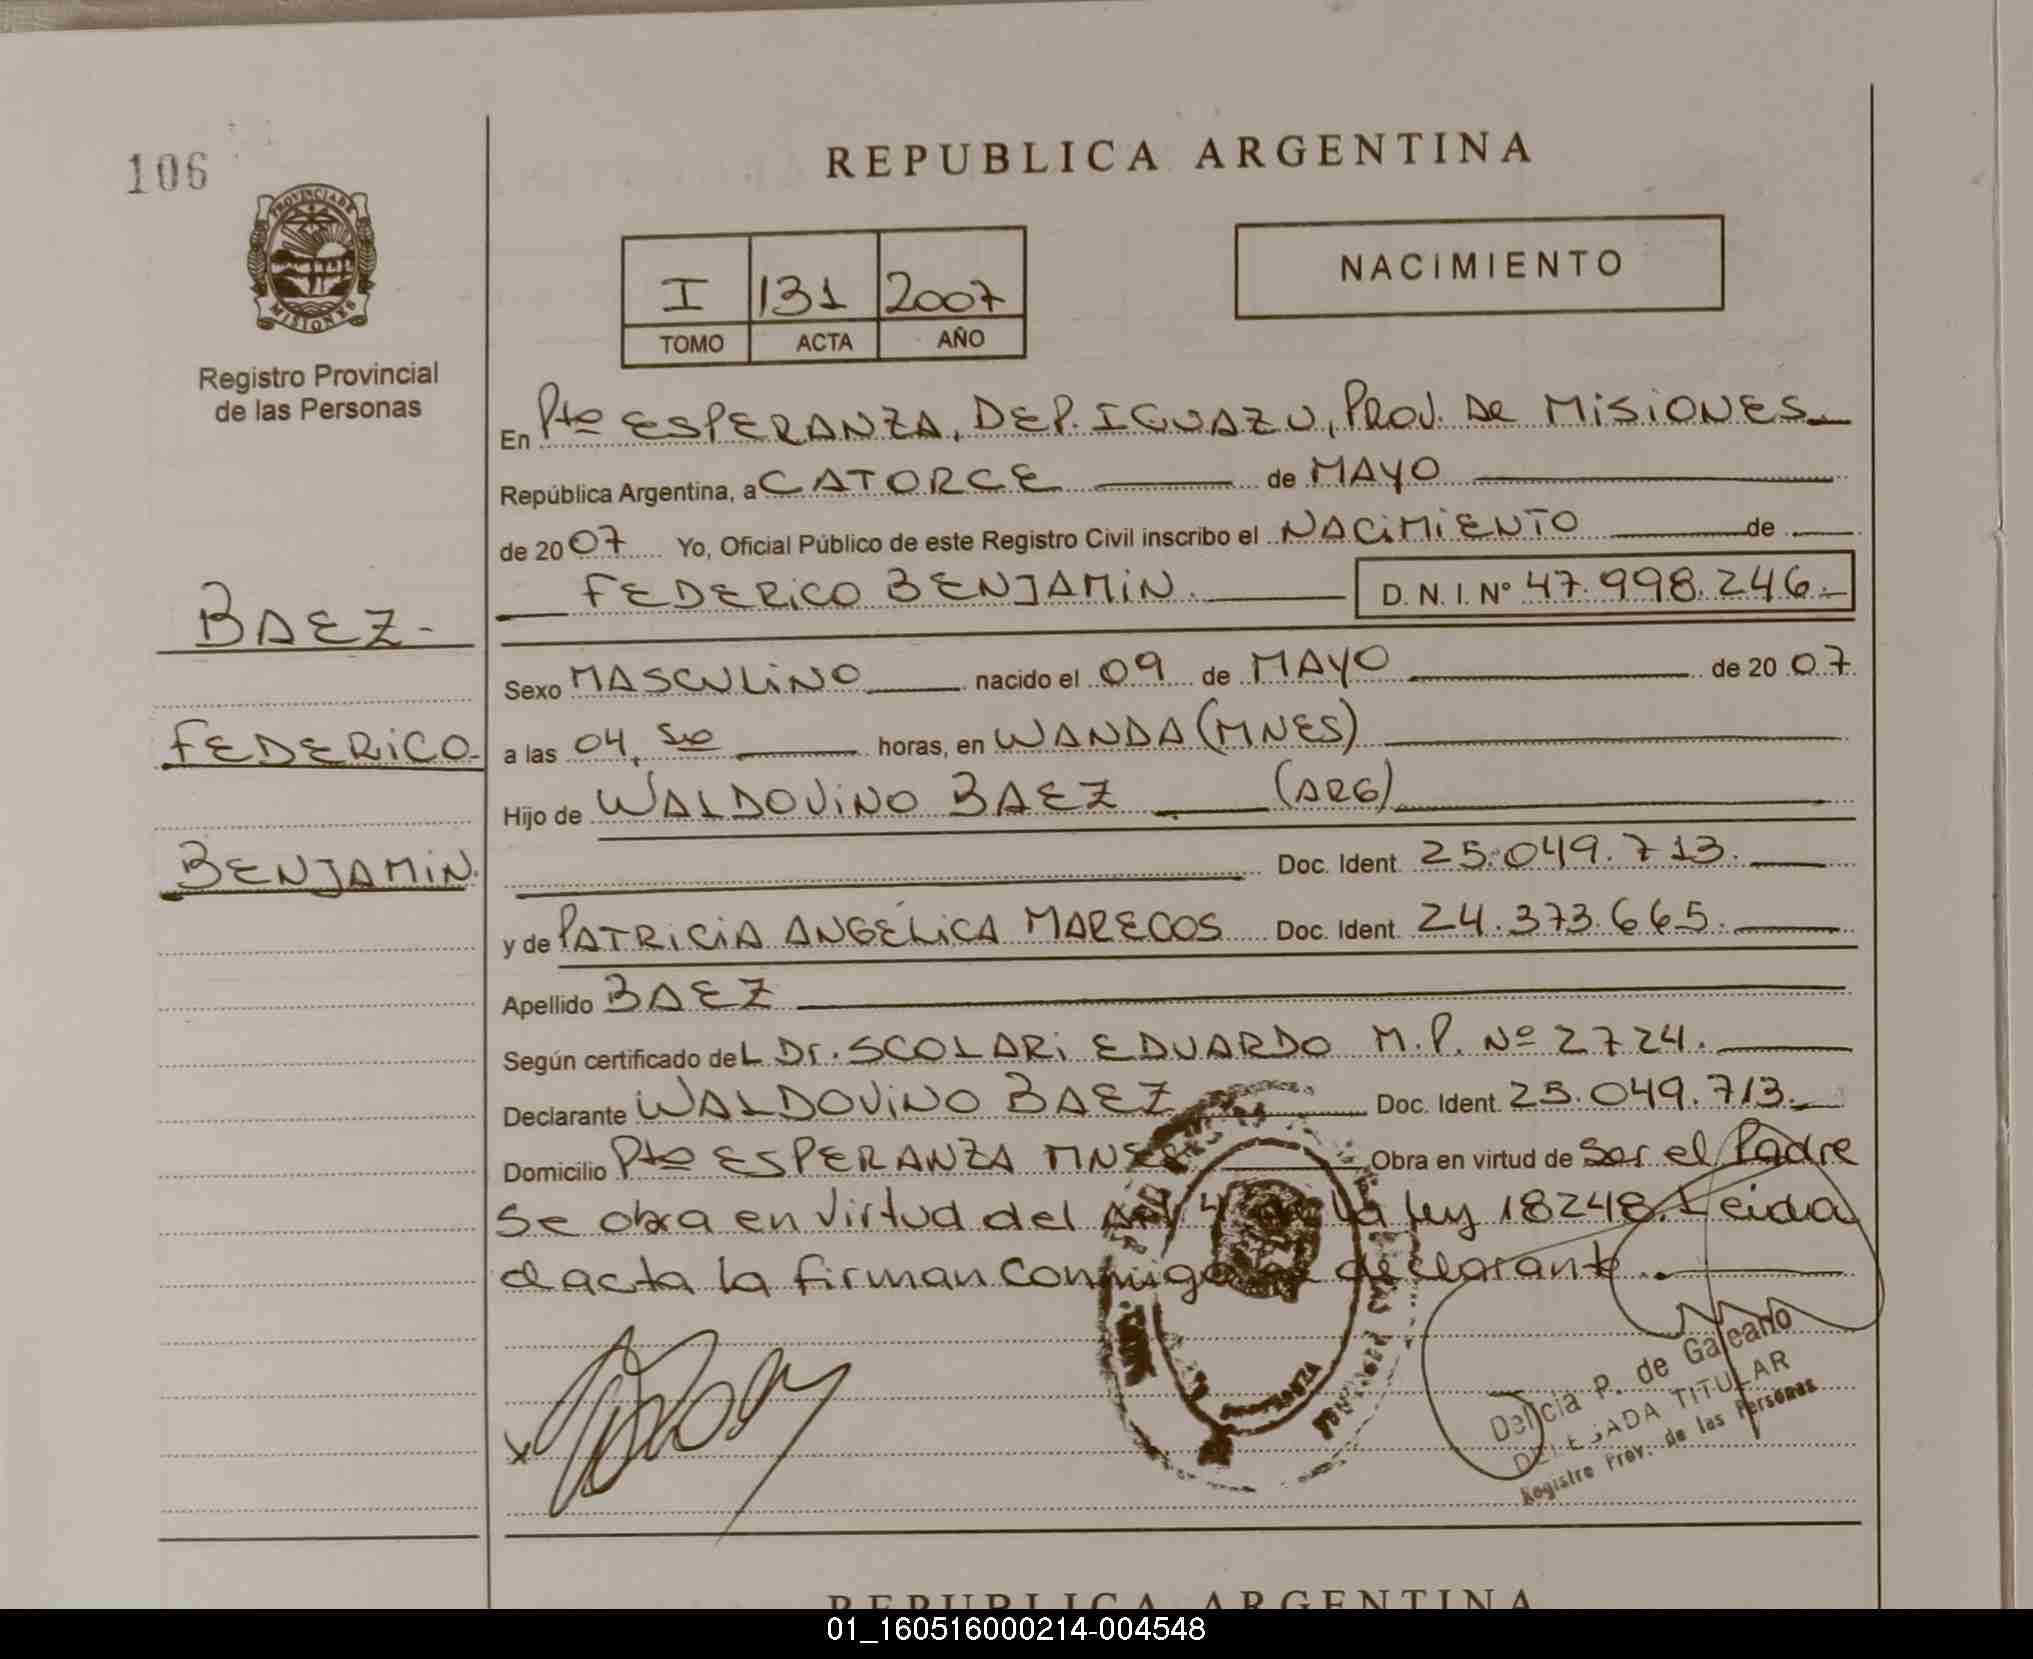 106
REPUBLICA ARGENTINA
PROVINCIA DE
MISIONES
Registro Provincial
de las Personas
I 131 2007
TOMO ACTA AÑO
NACIMIENTO
En Pto ESPERANZA, DEP. IGUAZU, PROV. De MISIONES
República Argentina, a CATORCE de MAYO
de 2007 Yo, Oficial Público de este Registro Civil inscribo el NACIMIENTO de
FEDERICO BENJAMIN. D.N.I. Nº 47.998.246.
BAEZ-
Sexo MASCULINO nacido el 09 de MAYO de 2007
FEDERICO-
a las 04, 50 horas, en WANDA (MNES)
Hijo de WALDOVINO BAEZ (ARG)
BENJAMIN.
Doc. Ident. 25.049.713.
y de PATRICIA ANGÉLICA MARECOS Doc. Ident. 24.373.665.
Apellido BAEZ
Según certificado deL Dr. SCOLARI EDUARDO M.P. Nº 2724.
Declarante WALDOVINO BAEZ Doc. Ident. 25.049.713.
Domicilio Pto ESPERANZA MNES Obra en virtud de Ser el Padre
Se obra en virtud del Art. 4 la ley 18248. Leida
el acta la firman conmigo declarante.
Delicia P. de Galeano
DELEGADA TITULAR
Registro Prov. de las Personas
REPUBLICA ARGENTINA
01_160516000214-004548